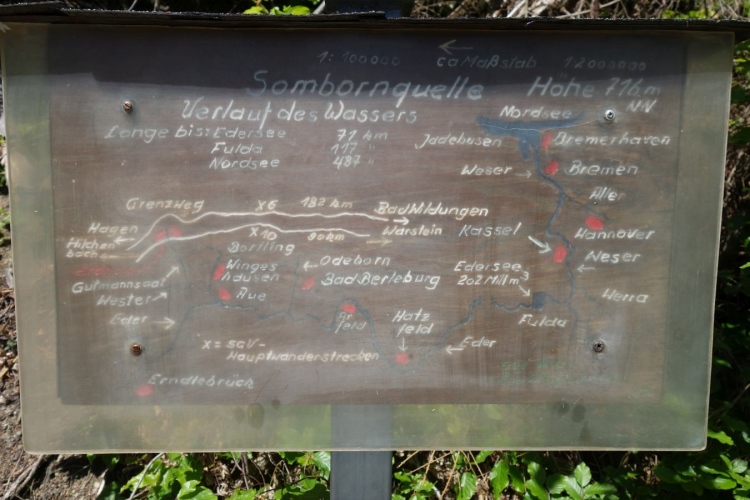 1:100000 ← ca Maßstab 1:2000000
Sombornquelle Höhe 716m
Verlauf des Wassers Nordsee NN
Länge bis: Edersee 71 km
Fulda 117 "
Nordsee 487 "
Jadebusen Bremerhaven
Weser → Bremen
Aller
Grenzweg X6 182 km
Bad Wildungen
Hagen
X10 90km Warstein
Hilchen
bach
Kassel Hannover
Bortling
Winges
hausen
Odeborn
Bad Berleburg
Edersee
202 Mill m³
Weser
Gutmannsaal
Wester
Aue
Werra
Eder
Ar
feld
Hatz
feld
Fulda
X = SGV-
Hauptwanderstrecken
← Eder
Erndtebrück